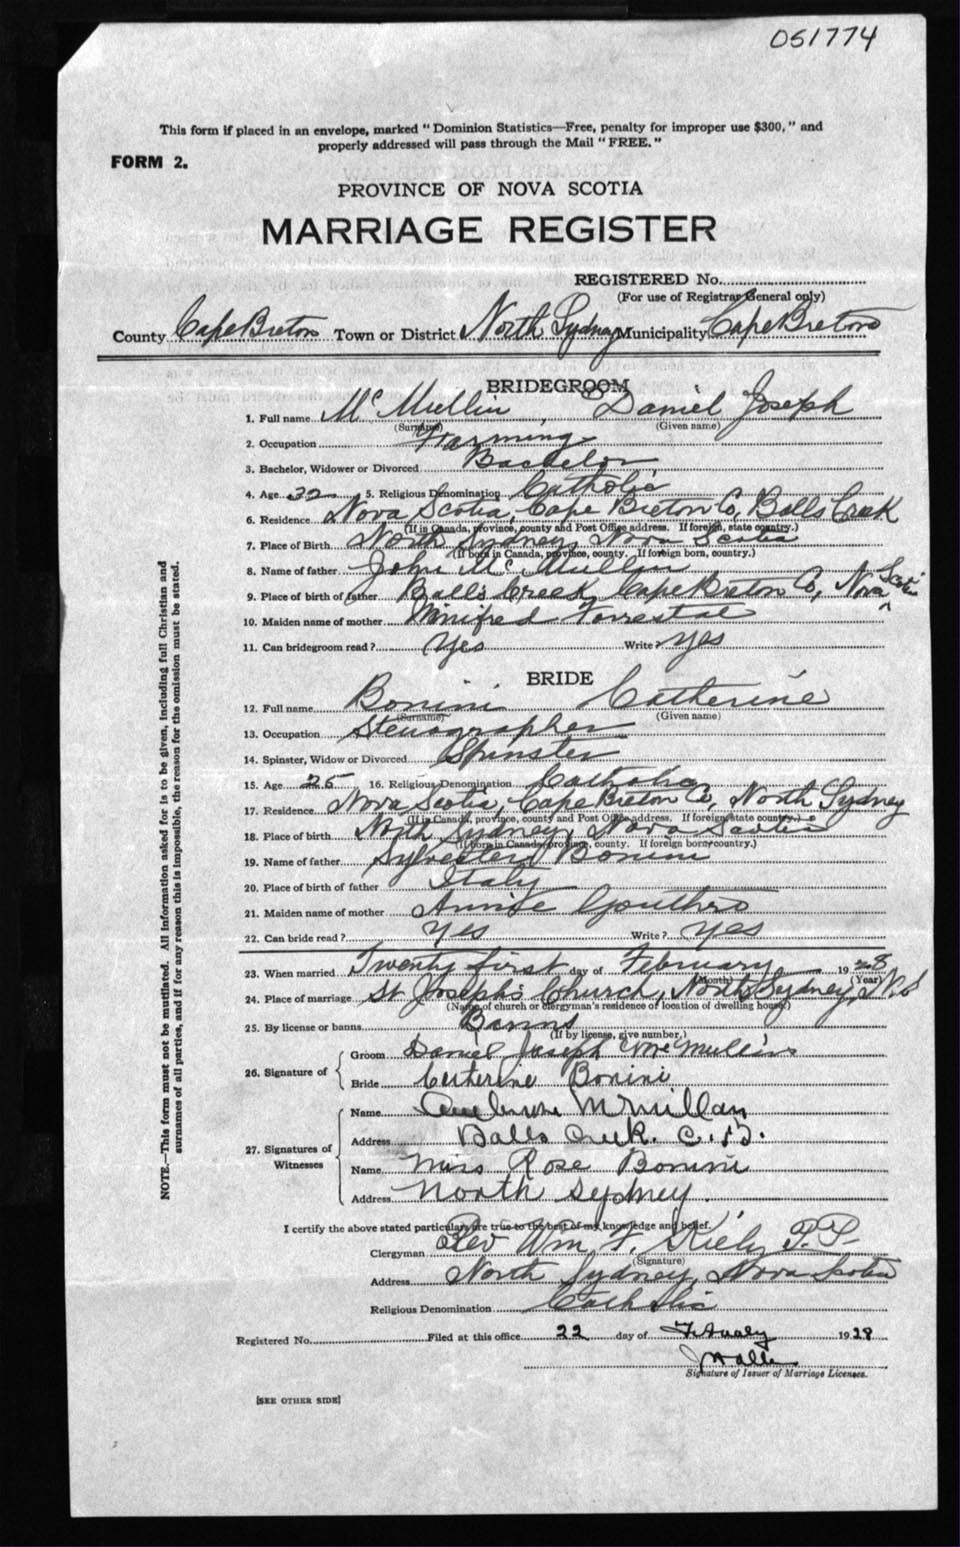 051774
This form if placed in an envelope, marked "Dominion Statistics—Free, penalty for improper use $300," and
properly addressed will pass through the Mail "FREE."
FORM 2.
PROVINCE OF NOVA SCOTIA
MARRIAGE REGISTER
REGISTERED No.
(For use of Registrar General only)
County Cape Breton Town or District North Sydney Municipality Cape Breton
BRIDEGROOM
1. Full name McMullin Daniel Joseph
(Surname) (Given name)
2. Occupation Farming
3. Bachelor, Widower or Divorced Bachelor
4. Age 32 5. Religious Denomination Catholic
6. Residence Nova Scotia, Cape Breton Co, Balls Creek
(If in Canada, province, county and Post Office address. If foreign, state country.)
7. Place of Birth North Sydney, Nova Scotia
(If born in Canada, province, county. If foreign born, country.)
8. Name of father John McMullin
9. Place of birth of father Ball's Creek, Cape Breton Co, Nova Scotia
10. Maiden name of mother Winifred Forrestal
11. Can bridegroom read? Yes Write? Yes
BRIDE
12. Full name Bonini Catherine
(Surname) (Given name)
13. Occupation Stenographer
14. Spinster, Widow or Divorced Spinster
15. Age 25 16. Religious Denomination Catholic
17. Residence Nova Scotia, Cape Breton Co, North Sydney
(If in Canada, province, county and Post Office address. If foreign state country.)
18. Place of birth North Sydney, Nova Scotia
(If born in Canada, province, county. If foreign born, country.)
19. Name of father Sylvester Bonini
20. Place of birth of father Italy
21. Maiden name of mother Annie Gouthro
22. Can bride read? Yes Write? Yes
23. When married Twenty first day of February 1928
(Month) (Year)
24. Place of marriage St Joseph's Church, North Sydney, N.S
(Name of church or clergyman's residence of location of dwelling house)
25. By license or banns Banns
(If by license, give number.)
26. Signature of Groom Daniel Joseph McMullin
Bride Catherine Bonini
27. Signatures of Witnesses Name McMullan
Address Balls Creek. C.B.
Name Miss Rose Bonini
Address North Sydney.
I certify the above stated particulars are true to the best of my knowledge and belief.
Clergyman Rev Wm F. Kiely P.P.
(Signature)
Address North Sydney, Nova Scotia
Religious Denomination Catholic
Registered No. Filed at this office 22 day of 1928
Signature of Issuer of Marriage Licenses.
[SEE OTHER SIDE]
NOTE.—This form must not be mutilated. All information asked for is to be given, including full Christian and
surnames of all parties, and if for any reason this is impossible, the reason for the omission must be stated.